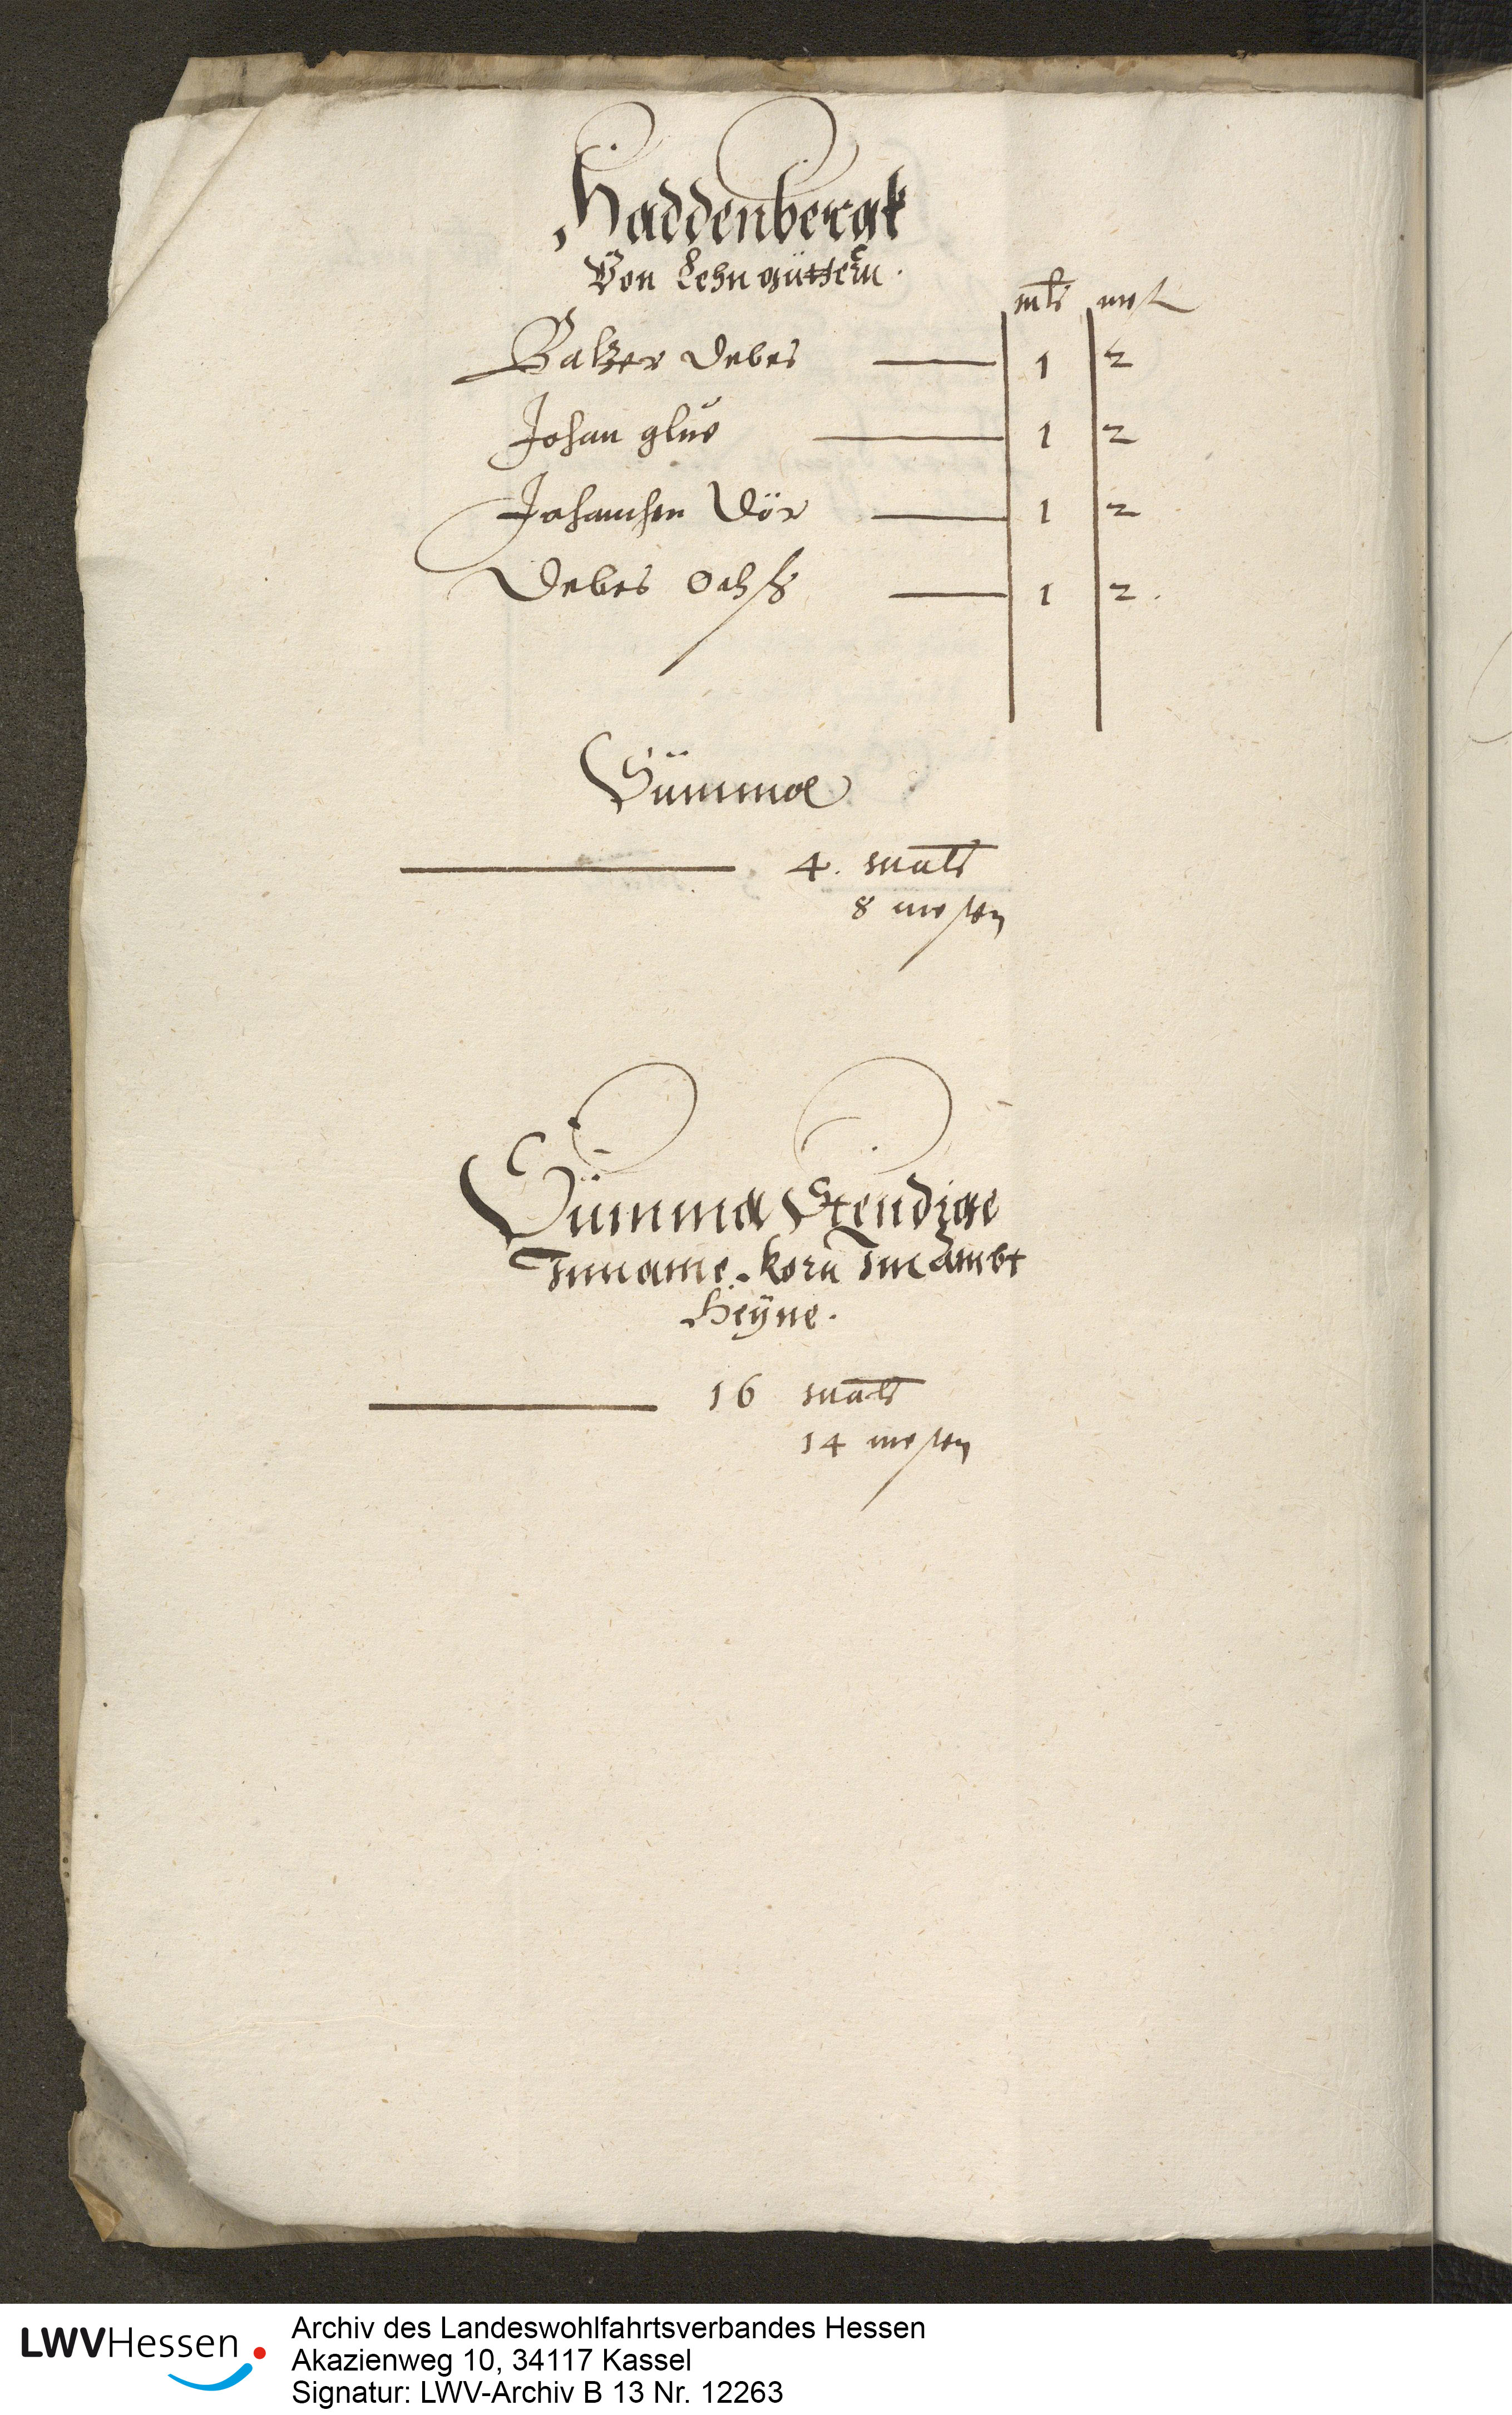 Haddenbergk
Von Lehngüttern.
mlr mest
Baltzer Debes 1 2
Johan glue 1 2
Johanchen Dör 1 2
Debes Ochß 1 2.
Summa
4. malr
8 mesten
Summa Stendige
Inname. korn Im Ambt
Heyne.
16 malr
14 mesten
LWVHessen
Archiv des Landeswohlfahrtsverbandes Hessen
Akazienweg 10, 34117 Kassel
Signatur: LWV-Archiv B 13 Nr. 12263